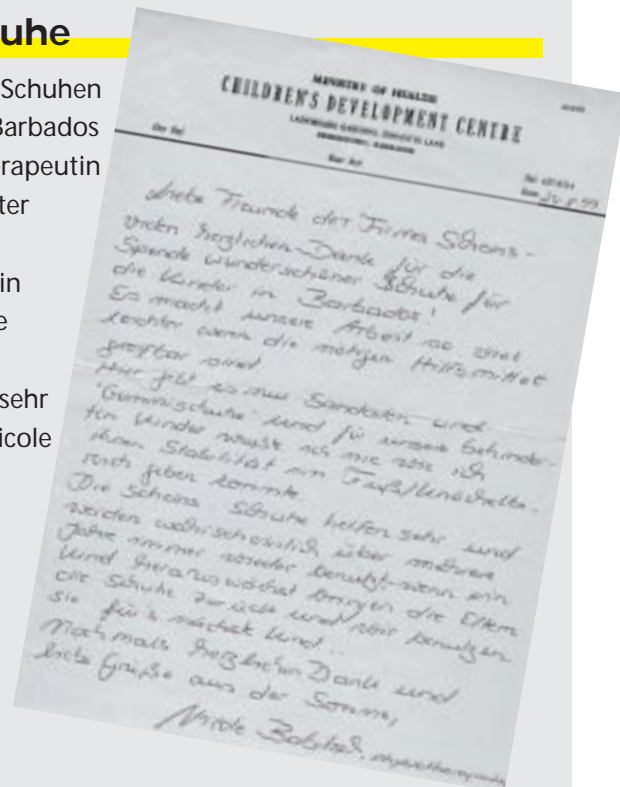 uhe
Schuhen
Barbados
rapeutin
ter
in
e
sehr
icole
MINISTRY OF HEALTH
CHILDREN'S DEVELOPMENT CENTRE
Our Ref
Your Ref
Liebe Freunde der Firma Schein -
vielen herzlichen Dank für die
Spende wunderschöner Schuhe für
die Kinder in Barbados!
Es macht unsere Arbeit so viel
leichter wenn die nötigen Hilfsmittel
greifbar sind.
Hier gibt es nur Sandalen und
"Gummischuhe" und für unsere behinder-
ten Kinder wußte ich nie wie ich
ihnen Stabilität im
geben konnte
Die Scheins Schuhe helfen sehr und
werden wahrscheinlich über mehrere
Jahre immer wieder benutzt - wenn ein
Kind herauswächst bringen die Eltern
die Schuhe zurück und wir benutzen
sie für's nächste Kind.
Nochmals herzlichen Dank und
liebe Grüße aus der Sonne,
Nicole